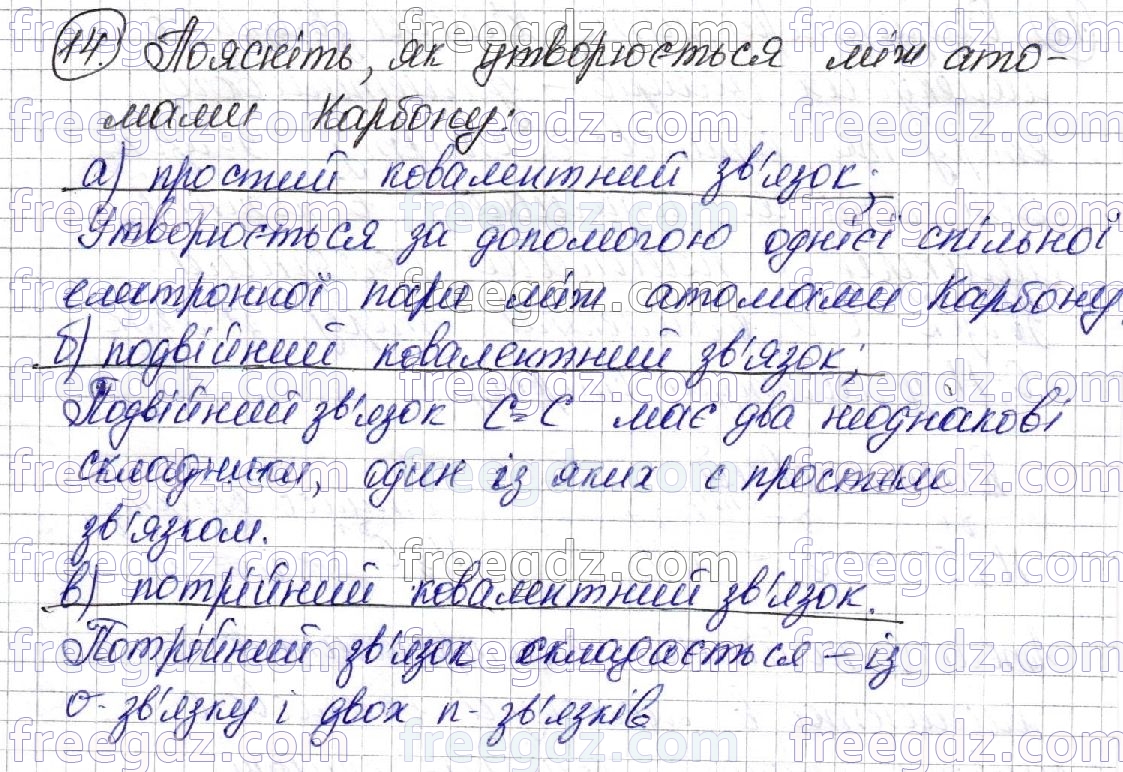 14. Поясніть, як утворюється між ато-
мами Карбону:
а) простий ковалентний зв'язок;
Утворюється за допомогою однієї спільної
електронної пари між атомами Карбону
б) подвійний ковалентний зв'язок;
Подвійний зв'язок C=C має два неоднакові
складники, один із яких є простим
зв'язком.
в) потрійний ковалентний зв'язок.
Потрійний зв'язок складається - із
σ- зв'язку і двох п- зв'язків
freegdz.com